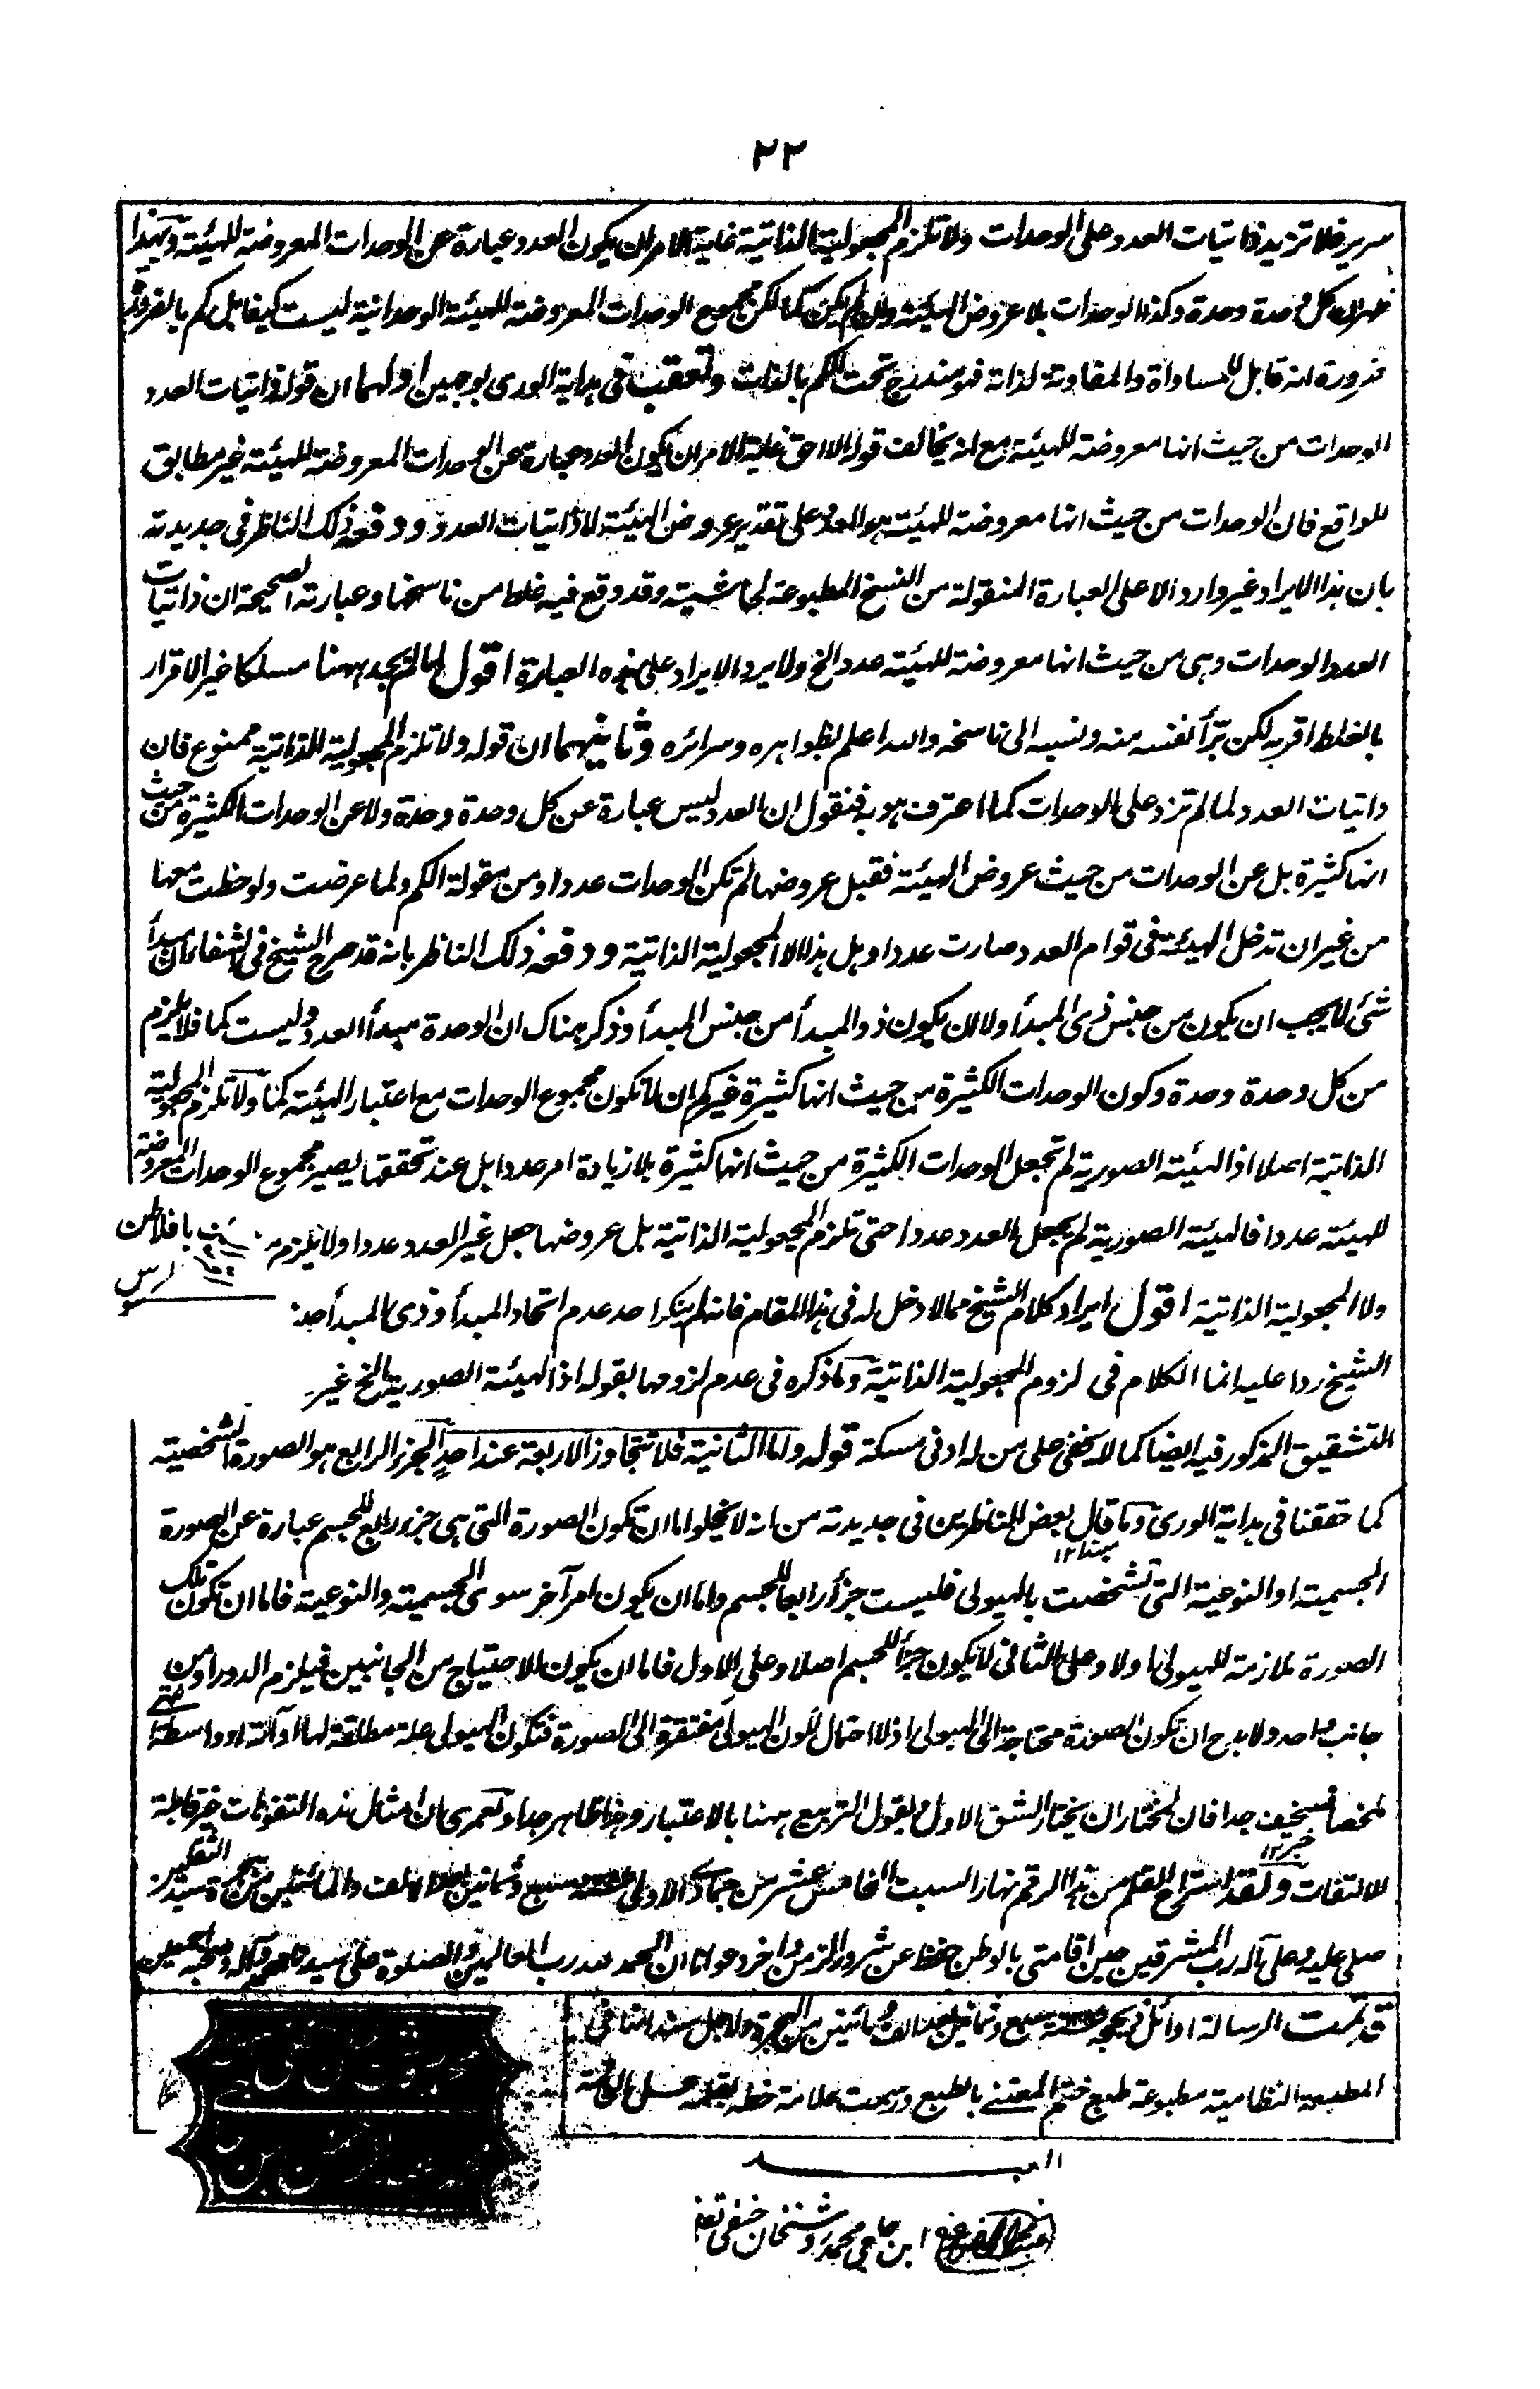 ٢٢
سرير فلا تزيد ذاتيات العدد على الوحدات ولا تلزم المجعولية الذاتية غاية الامر ان يكون العدد عبارة عن الوحدات المعروضة للهيئة وبهذا
ظهر ان كل وحدة وحدة وكذا الوحدات بلا عروض الهيئة وان لم يكن كما لكن مجموع الوحدات المعروضة للهيئة الوحدانية ليست كيفا بل كم بالضرورة
ضرورة انه قابل للمساواة والمفاوتة لذاته فهو مندرج تحت الكم بالذات وتعقب في هداية الورى بوجهين اولهما ان قوله ذاتيات العدد
الوحدات من حيث انها معروضة للهيئة مع انه يخالف قوله الاحق غاية الامر ان يكون العدد عبارة عن الوحدات المعروضة للهيئة غير مطابق
للواقع فان الوحدات من حيث انها معروضة للهيئة هو العدد على تقدير عروض الهيئة لا ذاتيات العدد ودفعه ذلك الناظر في جديدته
بان هذا الايراد غير وارد الا على العبارة المنقولة من النسخ المطبوعة لحاشيته وقد وقع فيه غلط من ناسخها وعبارته الصحيحة ان ذاتيات
العدد الوحدات وهي من حيث انها معروضة للهيئة عدد الخ ولا يرد الايراد على هذه العبارة اقول لما لم يجد ههنا مسلكا غير الاقرار
بالغلط اقر به لكن برّأ نفسه منه ونسبه الى ناسخه والله اعلم بظواهره وسرائره وثانيهما ان قوله ولا تلزم المجعولية الذاتية ممنوع فان
ذاتيات العدد لما لم تزد على الوحدات كما اعترف هو به فنقول ان العدد ليس عبارة عن كل وحدة وحدة ولا عن الوحدات الكثيرة من حيث
انها كثيرة بل عن الوحدات من حيث عروض الهيئة فقبل عروضها لم تكن الوحدات عددا ومن مقولة الكم ولما عرضت ولوحظت معها
من غير ان تدخل الهيئة في قوام العدد صارت عددا وهل هذا الا المجعولية الذاتية ودفعه ذلك الناظر بانه قد صرح الشيخ في الشفاء ان مبدأ
شئ لا يجب ان يكون من جنس ذي المبدأ ولا ان يكون ذو المبدأ من جنس المبدأ وذكر هناك ان الوحدة مبدأ العدد وليست كما فلا يلزم
من كل وحدة وحدة وكون الوحدات الكثيرة من حيث انها كثيرة غير كم ان لا تكون مجموع الوحدات مع اعتبار الهيئة كما ولا تلزم المجعولية
الذاتية اصلا اذ الهيئة الصورية لم تجعل الوحدات الكثيرة من حيث انها كثيرة بلا زيادة امر عددا بل عند تحققها يصير مجموع الوحدات المعروضة
للهيئة عددا فالهيئة الصورية لم يجعل العدد عددا حتى تلزم المجعولية الذاتية بل عروضها جعل غير العدد عددا ولا يلزم
ولا المجعولية الذاتية اقول ايراد كلام الشيخ مما لا دخل له في هذا المقام فانه لم ينكر احد عدم اتحاد المبدأ وذي المبدأ
الشيخ ردا عليه انما الكلام في لزوم المجعولية الذاتية وما ذكره في عدم لزومها بقوله اذ الهيئة الصورية الخ غير
التشقيق المذكور فيه ايضا كما لا يخفى على من له ادنى مسكة قوله واما الثانية فلا تتجاوز الاربعة عند احد الجزء الرابع هو الصورة الشخصية
كما حققنا في هداية الورى وما قال بعض الناظرين في جديدته من انه لا يخلوا ما ان تكون الصورة التي هي جزء رابع للجسم عبارة عن الصورة
الجسمية او النوعية التي تشخصت بالهيولى فليست جزأ رابعا للجسم واما ان يكون امر آخر سوى الجسمية والنوعية فاما ان تكون تلك
الصورة ملازمة للهيولى او لا وعلى الثاني لا يكون جزأ للجسم اصلا وعلى الاول فاما ان يكون الاحتياج من الجانبين فيلزم الدور او من
جانب واحد ولا بد ح ان تكون الصورة محتاجة الى الهيولى اذ لا احتمال لكون الهيولى مفتقرة الى الصورة فتكون الهيولى علة مطلقة لها او آلة او واسطة
ملخصا فسخيف جدا فان لمختار ان يختار الشق الاول ويقول التربيع ههنا بالاعتبار وهذا ظاهر جدا ولعمري ان امثال هذه التفوهات غير قابلة
للالتفات ولقد استراح القلم من هذا الرقم نهار السبت الخامس عشر من جمادى الاولى سنة سبع وثمانين بعد الالف والمائتين من هجرة سيد الثقلين
صلى عليه وعلى آله رب المشرقين حين اقامتي بالوطن حفظ عن شرور الزمن وآخر دعوانا ان الحمد لله رب العالمين والصلوة على سيدنا محمد وآله وصحبه اجمعين
قد تمت الرسالة اوائل ذي حجة سنة سبع وثمانين بعد الف ومائتين من الهجرة ولاجل سندا انها في
المطبعة النظامية مطبوعة طبع ختم المعتني بالطبع ورسمت علامة خطه بقلمه
العبد
ابن حاجي محمد روشنخان حنفي